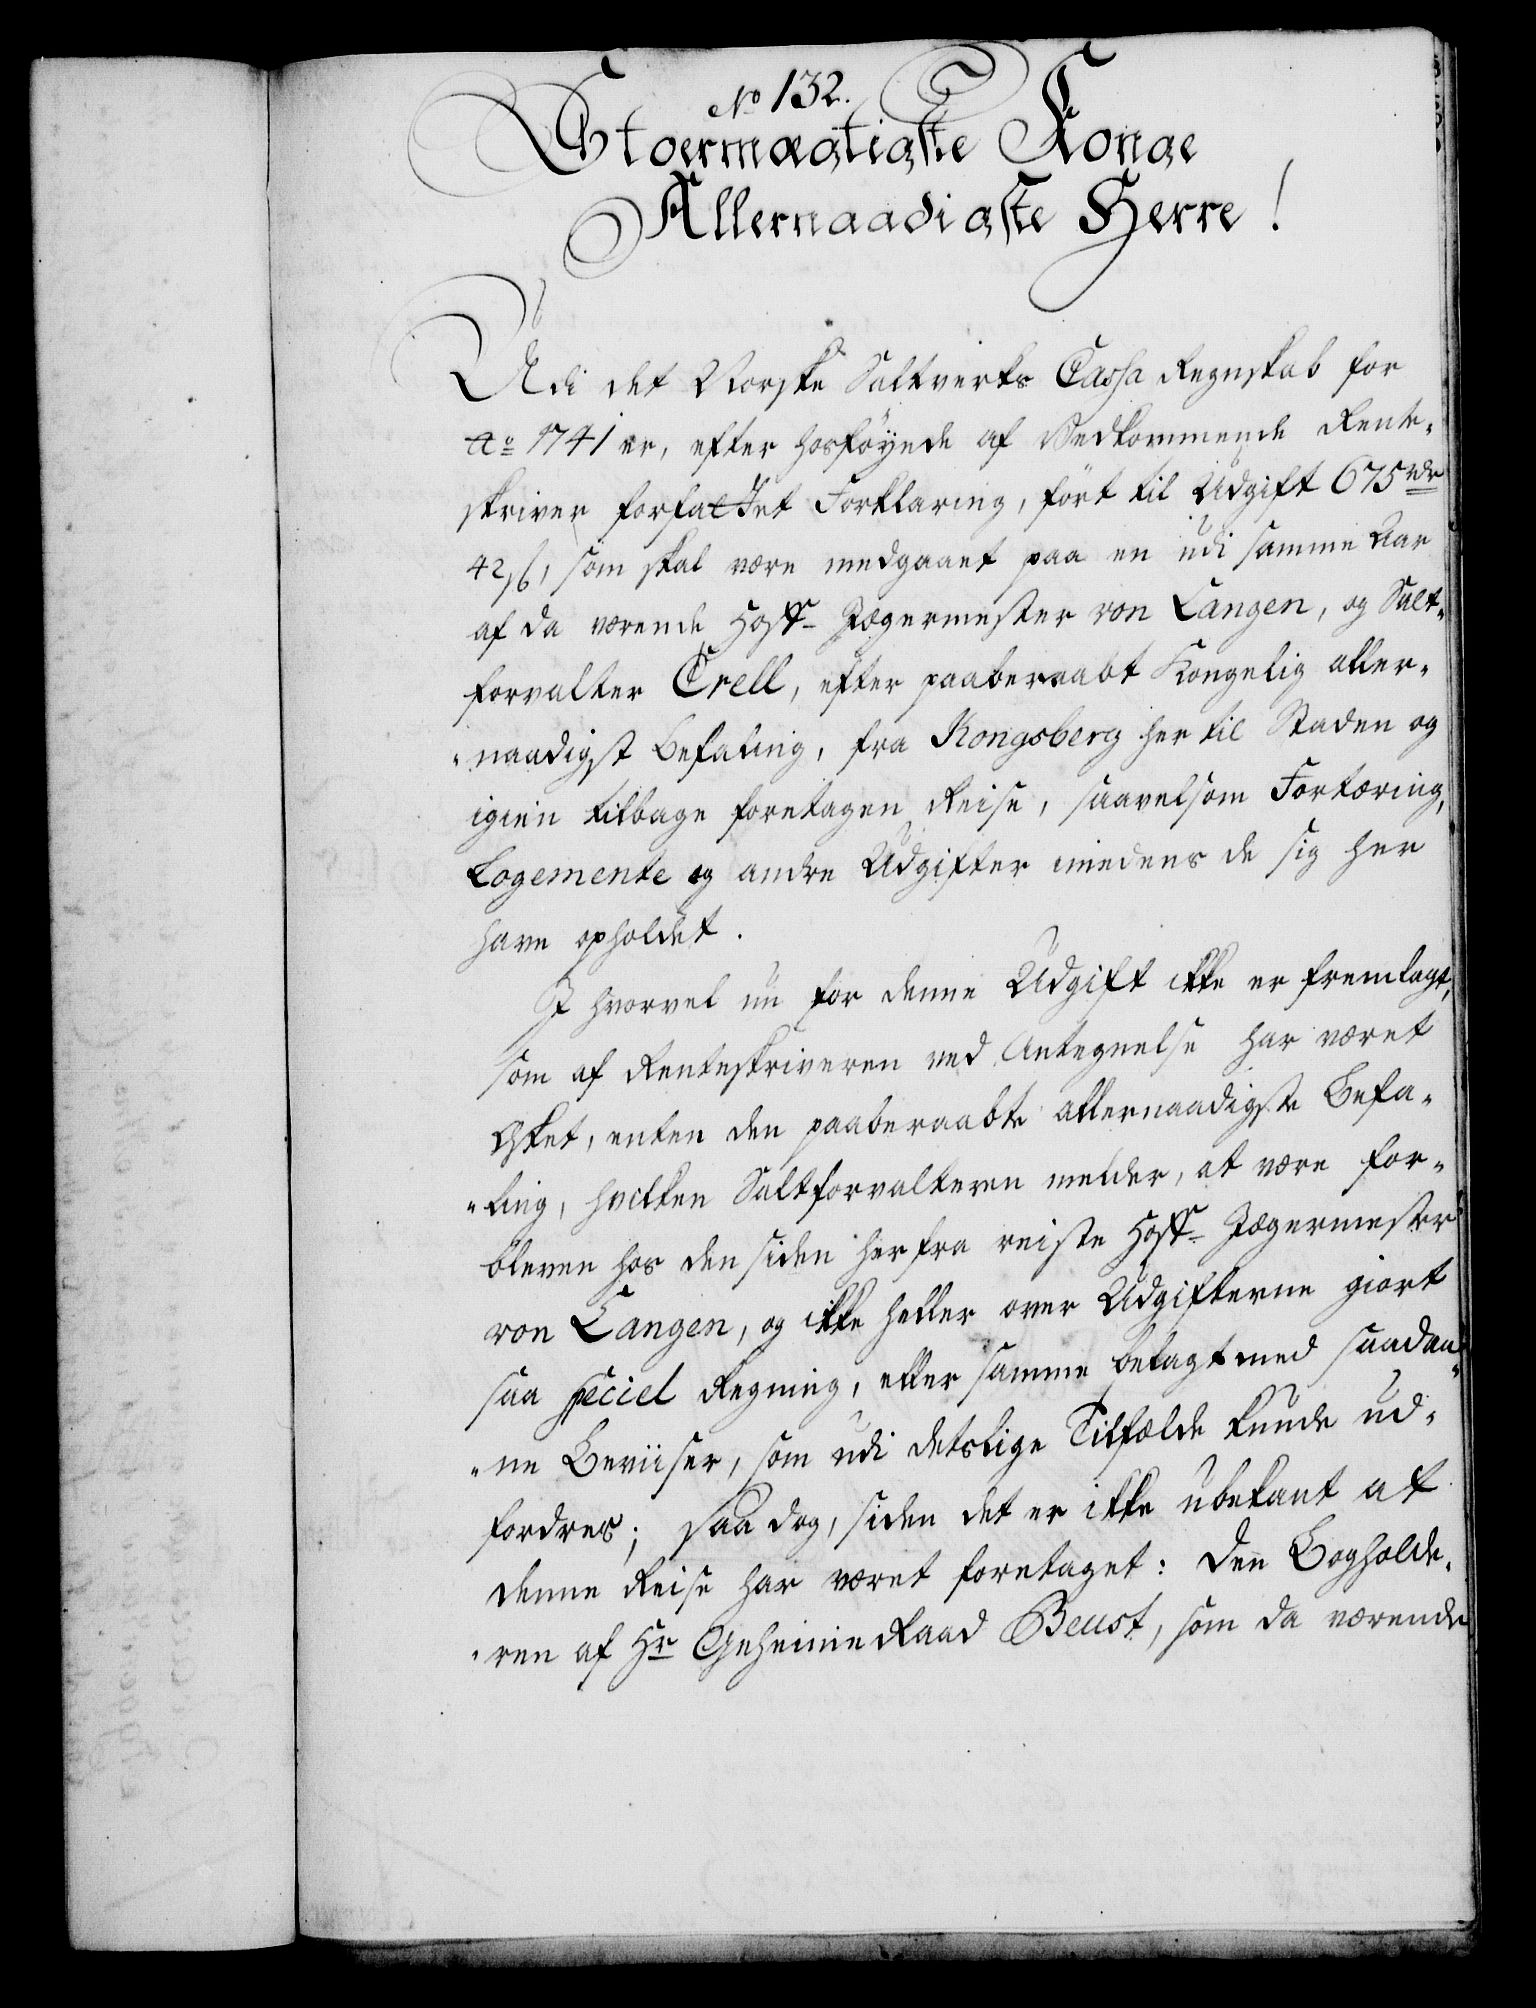 No 132.
Stoermægtigste Konge
Allernaadigste Herre!
Udi det Norske Saltverks Cassa Regnskab for
Ao 1741 er, efter hosføyede af Vedkommende Rente-
skriver forfattet Forklaring, ført til Udgift 675 rdr
42 ß, som skal være medgaaet paa en udi samme Aar
af da værende Hoff-Jægermester von Langen, og Salt-
forvalter Crell, efter paaberaabt Kongelig aller-
naadigst Befaling, fra Kongsberg her til Staden og
igien tilbage foretagen Reise, saavelsom Fortæring,
Logemente og andre Udgifter imedens de sig her
have opholdet.
I hvorvel nu for denne Udgift ikke er fremlagt,
som af Renteskriveren ved Antegnelse har været
æsket, enten den paaberaabte allernaadigste Befa-
ling, hvilken Saltforvalteren melder, at være for-
bleven hos den siden herfra reiste Hoff-Jægermester
von Langen, og ikke heller over Udgifterne giort
saa speciel Regning, eller samme belagt med saadan-
ne Beviiser, som udi deslige Tilfælde kunde ud-
fordres; saa dog, siden det er ikke ubekant at
denne Reise har været foretaget: den Bogholde-
ren af Hr Geheime Raad Beust, som da værende